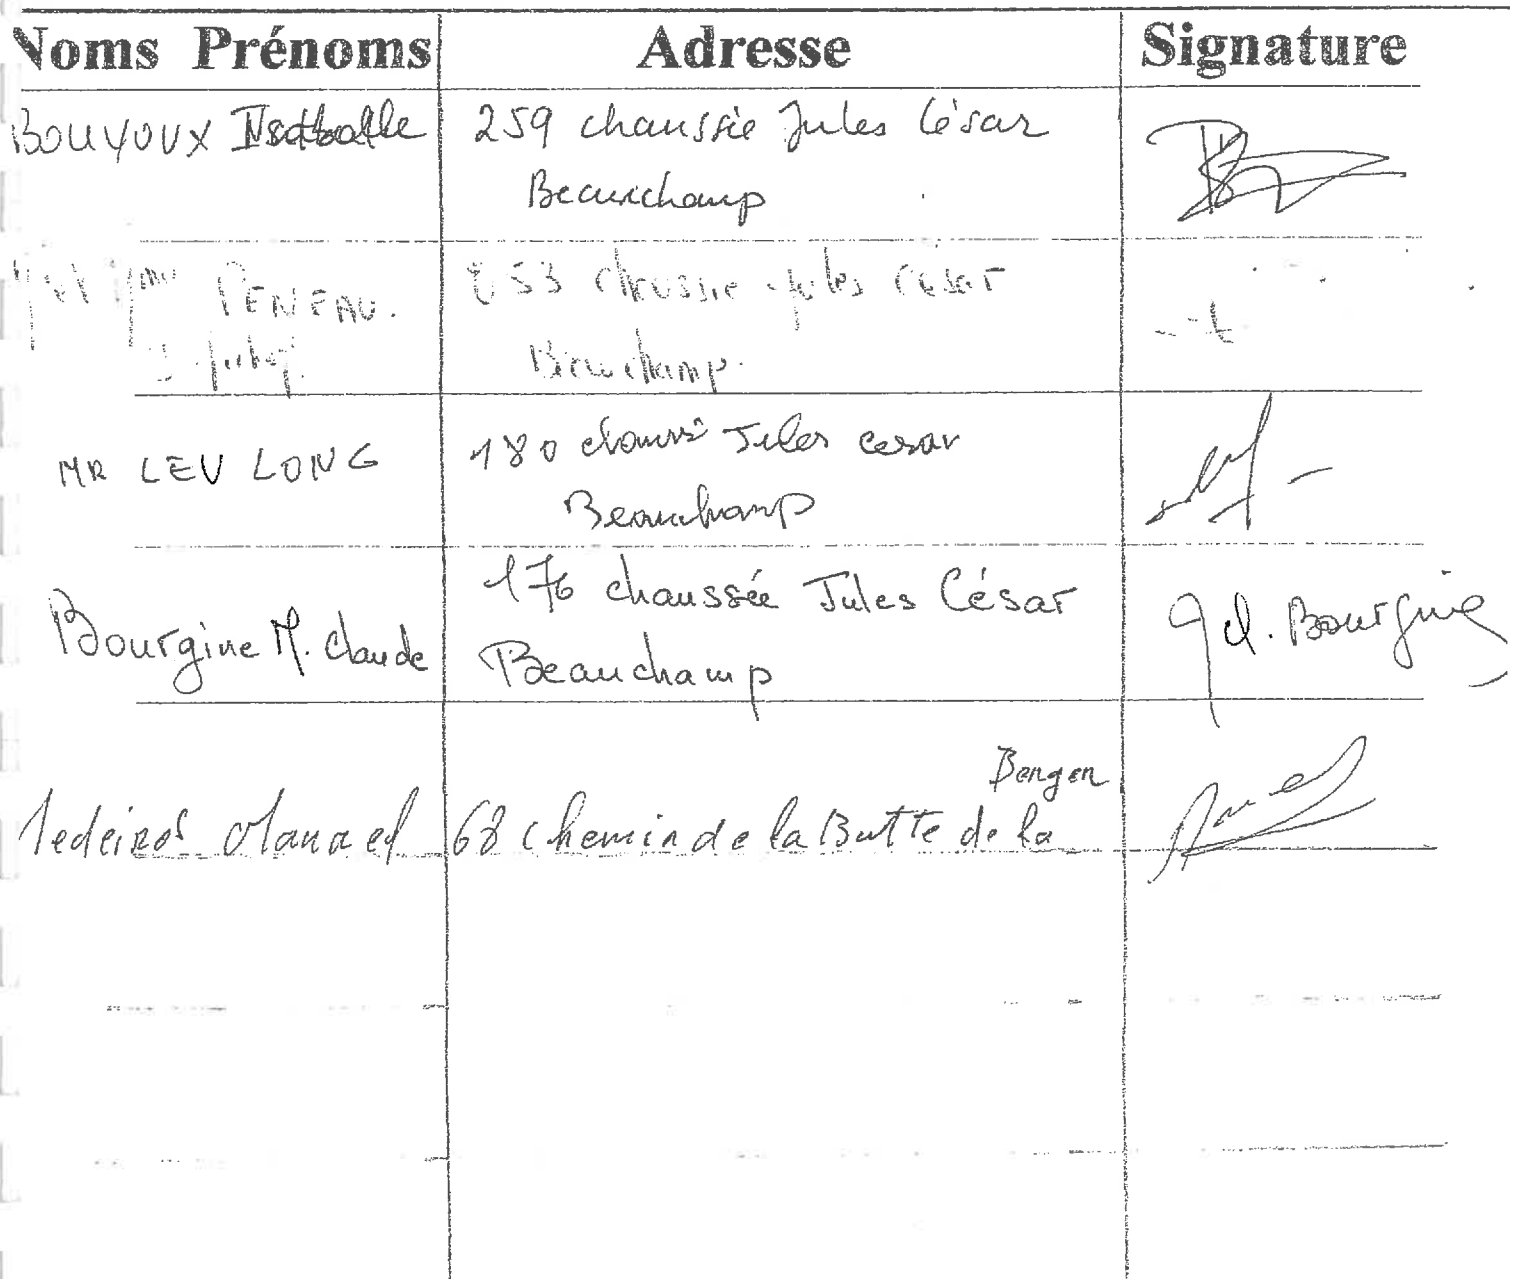 Noms Prénoms Adresse Signature
BOUYOUX Isabelle 259 chaussée Jules César
Beauchamp
PENEAU. 253 chaussie Jules César
Beauchamp.
MR LEU LONG 180 chaussé Jules cesar
Beauchamp
Bourgine M. Claude 176 chaussée Jules César
Beauchamp
cl. Bourgine
Bergere
Medeiros Manuel 68 Chemin de la Butte de la